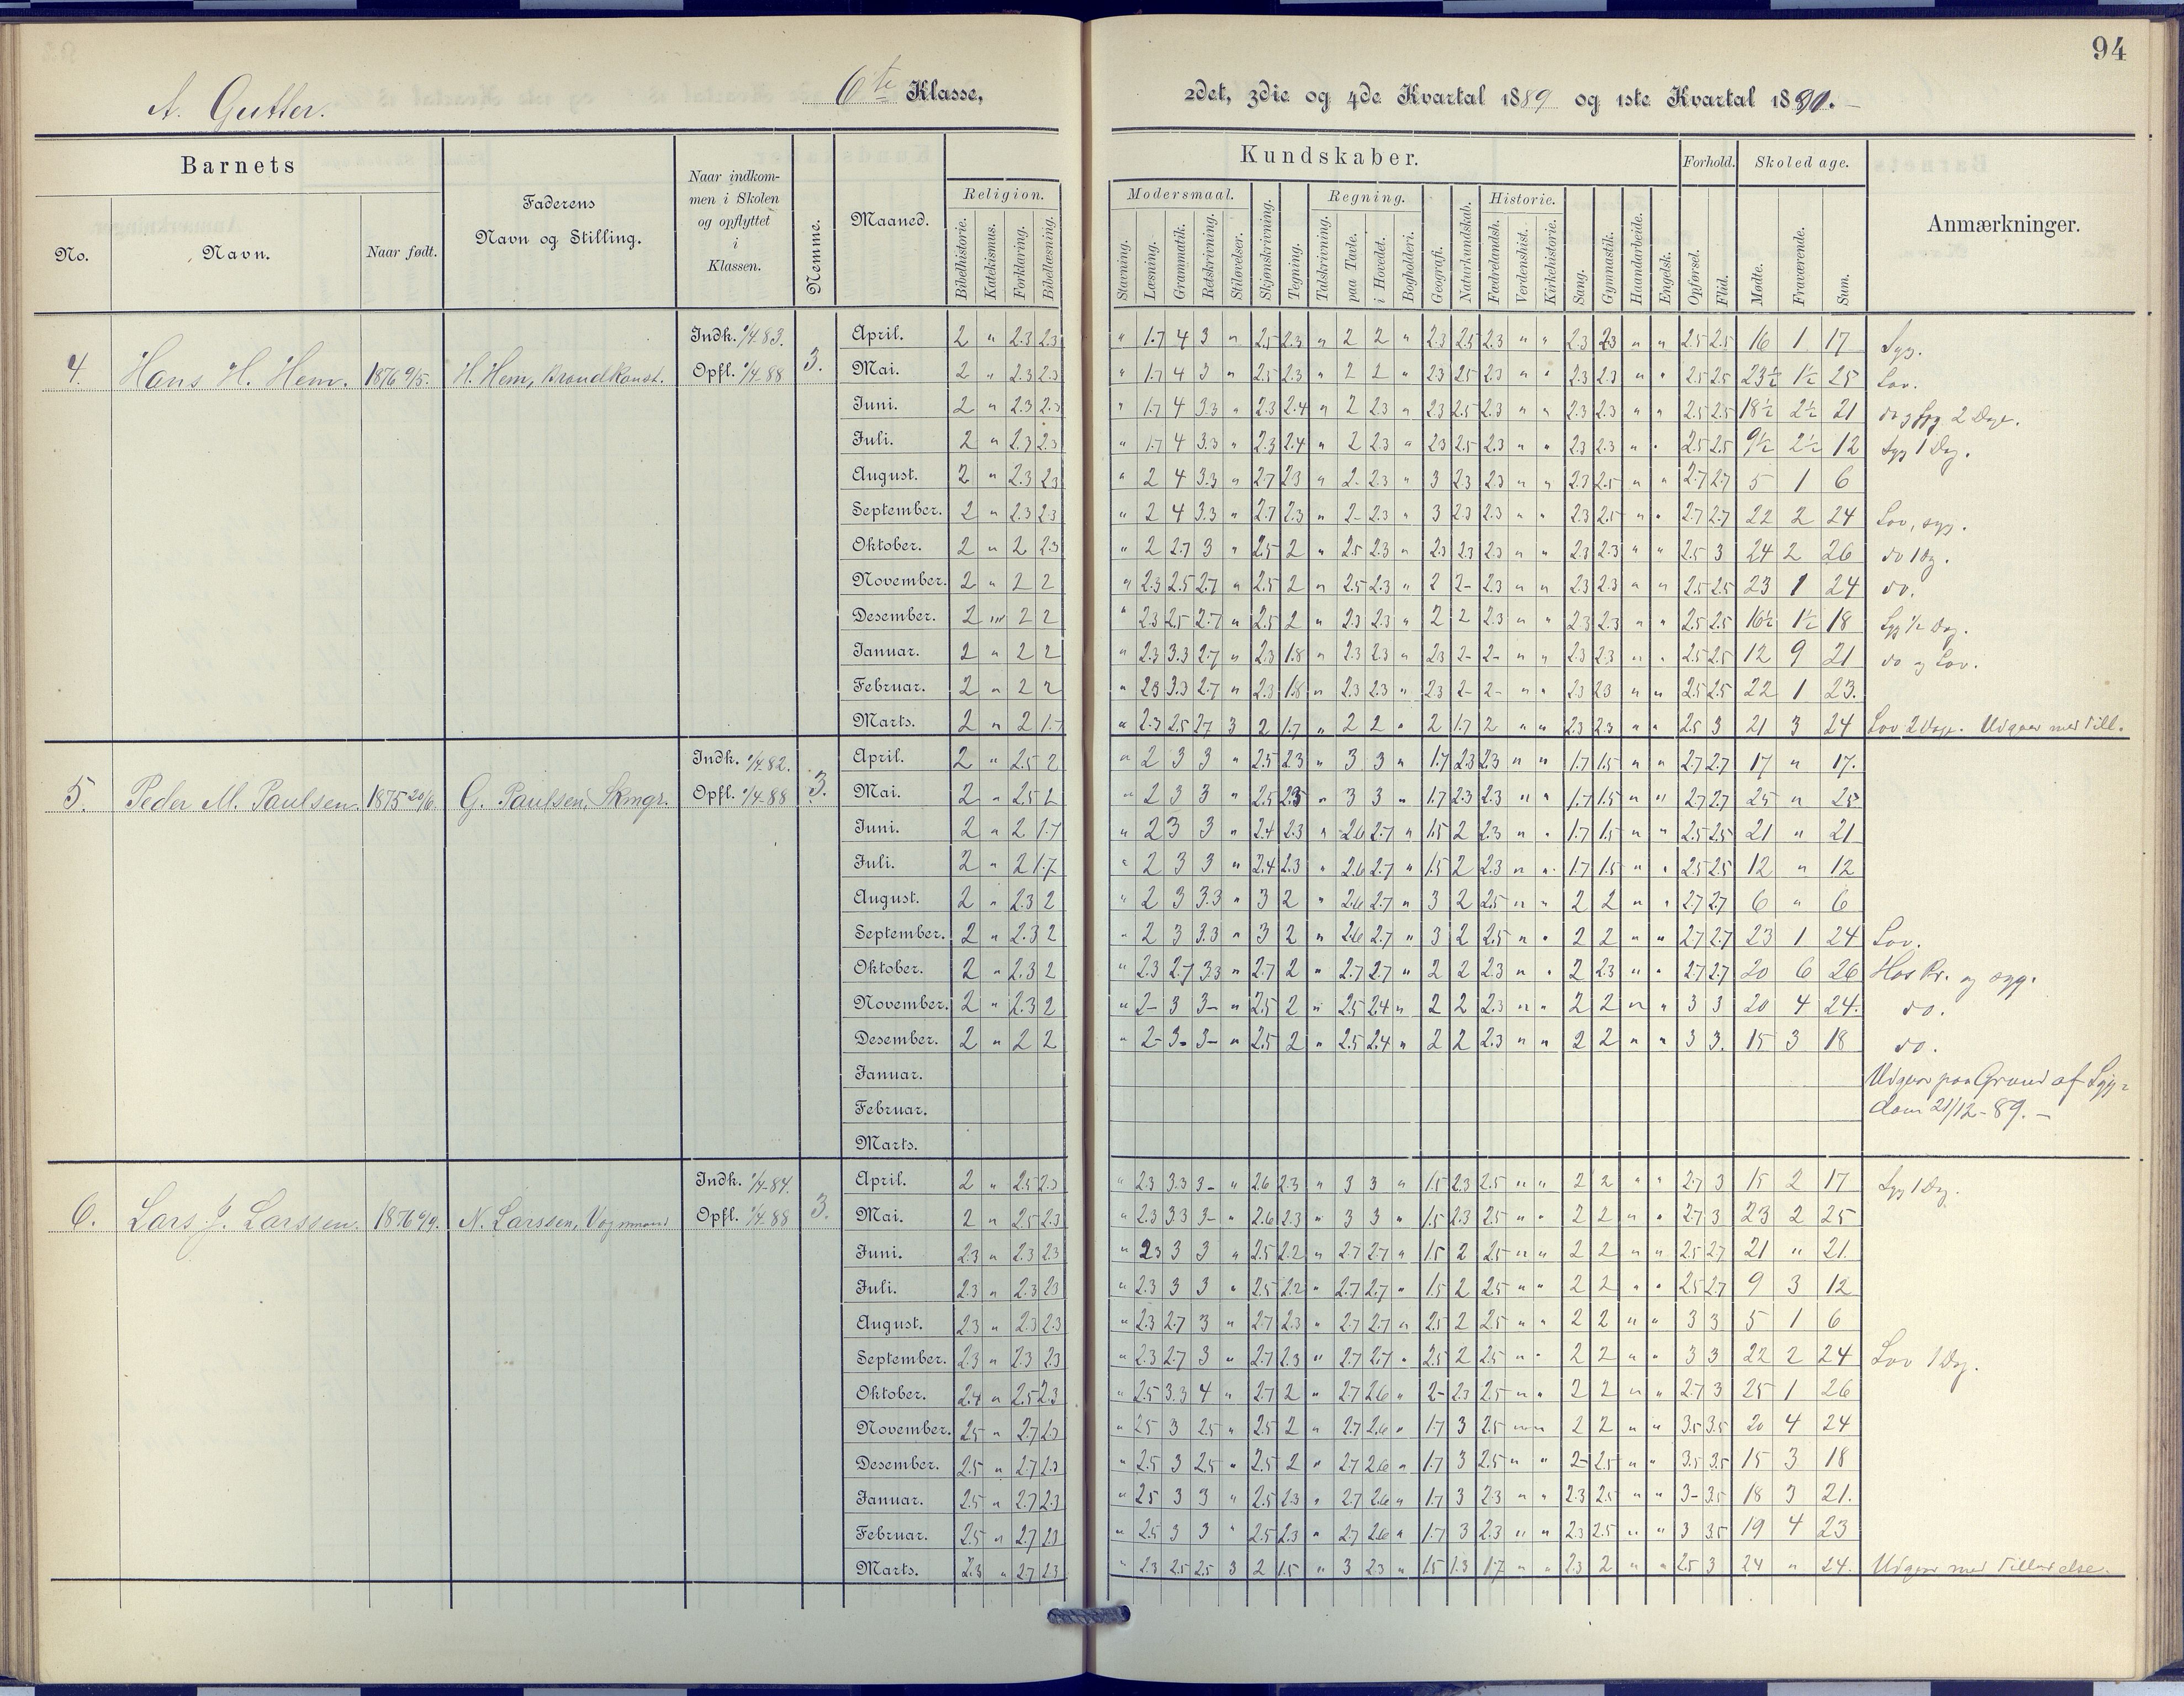 94
A. Gutter. 6te Klasse, 2det, 3die og 4de Kvartal 1889 og 1ste Kvartal 1890.
Barnets
No. Navn. Naar født.
Faderens Navn og Stilling.
Naar indkommen i Skolen og opflyttet i Klassen.
Nemme.
Maaned.
Kundskaber.
Religion. Bibelhistorie. Katekismus. Forklaring. Bibellæsning.
Modersmaal. Stavning. Læsning. Grammatik. Retskrivning. Stiløvelser.
Skjønskrivning. Tegning.
Regning. Talskrivning. paa Tavle. i Hovedet. Bogholderi.
Geografi. Naturkundskab.
Historie. Fædrelandsh. Verdenshist. Kirkehistorie.
Sang. Gymnastik. Haandarbeide. Engelsk.
Forhold. Opførsel. Flid.
Skoledage. Mødte. Fraværende. Sum.
Anmærkninger.
4. Hans H. Hem. 1876 H. Hem, Brandkonst. Indk. 1/4 83. Opfl. 1/4 88 3.
April. 2 " 2.3 2.3 " 1.7 4 3 " 2.5 2.3 " 2 2 " 2.3 2.5 2.3 " " 2.3 2.3 " " 2.5 2.5 16 1 17 Syg.
Mai. 2 " 2.3 2.3 " 1.7 4 3 " 2.5 2.3 " 2 2 " 2.3 2.5 2.3 " " 2.3 2.3 " " 2.5 2.5 23½ 1½ 25 Lov.
Juni. 2 " 2.3 2.3 " 1.7 4 3.3 " 2.3 2.4 " 2 2.3 " 2.3 2.5 2.3 " " 2.3 2.3 " " 2.5 2.5 18½ 2½ 21 do og Syg 2 Dage.
Juli. 2 " 2.3 2.3 " 1.7 4 3.3 " 2.3 2.4 " 2 2.3 " 2.3 2.5 2.3 " " 2.3 2.3 " " 2.5 2.5 9½ 2½ 12 Syg 1 Dag.
August. 2 " 2.3 2.3 " 2 4 3.3 " 2.7 2.3 " 2- 2.3 " 3 2.3 2.3 " " 2.3 2.5 " " 2.7 2.7 5 1 6
September. 2 " 2.3 2.3 " 2 4 3.3 " 2.7 2.3 " 2- 2.3 " 3 2.3 2.3 " " 2.3 2.5 " " 2.7 2.7 22 2 24 Lov, syg.
Oktober. 2 " 2 2.3 " 2 2.7 3 " 2.5 2 " 2.5 2.3 " 2.3 2.3 2.3 " " 2.3 2.3 " " 2.5 3 24 2 26 do 1 Dg.
November. 2 " 2 2 " 2.3 2.5 2.7 " 2.5 2 " 2.5 2.3 " 2 2- 2.3 " " 2.3 2.3 " " 2.5 2.5 23 1 24 do.
Desember. 2 " 2 2 " 2.3 2.5 2.7 " 2.5 2 " 2.3 2.3 " 2 2 2.3 " " 2.3 2.3 " " 2.5 2.5 16½ 1½ 18 Syg ½ Dag.
Januar. 2 " 2 2 " 2.3 3.3 2.7 " 2.3 1.8 " 2.3 2.3 " 2.3 2- 2- " " 2.3 2.3 " " 2.5 2.5 12 9 21 do og Lov.
Februar. 2 " 2 2 " 2.3 3.3 2.7 " 2.3 1.8 " 2.3 2.3 " 2.3 2- 2- " " 2.3 2.3 " " 2.5 2.5 22 1 23.
Marts. 2 " 2 1.7 " 2.3 2.5 2.7 3 2 1.7 " 2 2 " 2 1.7 2 " " 2.3 2.3 " " 2.5 3 21 3 24 Lov 2 Dage. Udgaar med Till.
5. Peder M. Paulsen. 1875 20/6 G. Paulsen, Skmgr. Indk. 1/4 82. Opfl. 1/4 88 3.
April. 2 " 2.5 2 " 2 3 3 " 2.5 2.3 " 3 3 " 1.7 2.3 2.3 " " 1.7 1.5 " " 2.7 2.7 17 " 17.
Mai. 2 " 2.5 2 " 2 3 3 " 2.5 2.3 " 3 3 " 1.7 2.3 2.3 " " 1.7 1.5 " " 2.7 2.7 25 " 25
Juni. 2 " 2 1.7 " 2 3 3 " 2.4 2.3 " 2.6 2.7 " 1.5 2 2.3 " " 1.7 1.5 " " 2.5 2.5 21 " 21
Juli. 2 " 2 1.7 " 2 3 3 " 2.4 2.3 " 2.6 2.7 " 1.5 2 2.3 " " 1.7 1.5 " " 2.5 2.5 12 " 12
August. 2 " 2.3 2 " 2 3 3.3 " 3 2 " 2.6 2.7 " 3 2 2.5 " " 2 2 " " 2.7 2.7 6 " 6
September. 2 " 2.3 2 " 2 3 3.3 " 3 2 " 2.6 2.7 " 3 2 2.5 " " 2 2 " " 2.7 2.7 23 1 24 Lov.
Oktober. 2 " 2.3 2 " 2.3 2.7 3.3 " 2.7 2 " 2.7 2.7 " 2 2 2.3 " " 2 2.3 " " 2.7 2.7 20 6 26 Hos Pr. og syg.
November. 2 " 2.3 2 " 2- 3 3- " 2.5 2 " 2.5 2.4 " 2 2 2.3 " " 2 2 " " 3 3 20 4 24. do.
Desember. 2 " 2 2 " 2- 3- 3- " 2.5 2 " 2.5 2.4 " 2 2 2.3 " " 2 2 " " 3 3. 15 3 18 do.
Januar. Udgaar paa Grund af Syg-
Februar. dom 21/12-89.-
Marts.
6. Lars J. Larssen. 1876 N. Larssen, Vognmand Indk. 1/4-84. Opfl. 1/4 88 3.
April. 2 " 2.5 2.3 " 2.3 3.3 3- " 2.6 2.3 " 3 3 " 1.5 2.3 2.5 " " 2 2 " " 2.7 3 15 2 17 Syg 1 Dag.
Mai. 2 " 2.5 2.3 " 2.3 3.3 3- " 2.6 2.3 " 3 3 " 1.5 2.3 2.5 " " 2 2 " " 2.7 3 23 2 25
Juni. 2.3 " 2.3 2.3 " 2.3 3 3 " 2.5 2.2 " 2.7 2.7 " 1.5 2 2.5 " " 2 2 " " 2.5 2.7 21 " 21.
Juli. 2.3 " 2.3 2.3 " 2.3 3 3 " 2.5 2.2 " 2.7 2.7 " 1.5 2 2.5 " " 2 2 " " 2.5 2.7 9 3 12
August. 2.3 " 2.3 2.3 " 2.3 2.7 3 " 2.7 2.3 " 2.7 2.7 " 2.5 2 2.5 " " 2 2 " " 3 3 5 1 6
September. 2.3 " 2.3 2.3 " 2.3 2.7 3 " 2.7 2.3 " 2.7 2.7 " 2.5 2 2.5 " " 2 2 " " 3 3 22 2 24 Lov 1 Dag.
Oktober. 2.4 " 2.5 2.3 " 2.5 3.3 4 " 2.7 2 " 2.7 2.6 " 2- 2.3 2.5 " " 2 2 " " 2.7 3 25 1 26
November. 2.5 " 2.7 2.3 " 2.5 3 2.5 " 2.5 2 " 2.7 2.6 " 1.7 3 2.5 " " 2 2 " " 3.5 3.5 20 4 24
Desember. 2.5 " 2.7 2.3 " 2.5 3 2.5 " 2.5 2 " 2.7 2.6 " 1.7 3 2.5 " " 2- 2.5 " " 3.5 3.5 15 3 18
Januar. 2.5 " 2.7 2.3 " 2.5 3 3 " 2.5 2.3 " 2.7 2.6 " 1.7 3 2.3 " " 2.3 2.5 " " 3- 3.5 18 3 21.
Februar. 2.5 " 2.7 2.3 " 2.5 3 3 " 2.5 2.3 " 2.7 2.6 " 1.7 3 2.3 " " 2.3 2.5 " " 3 3.5 19 4 23
Marts. 2.3 " 2.7 2.3 " 2.3 2.5 2.5 3 2 1.5 " 3 2.3 " 1.5 1.3 1.7 " " 2.3 2 " " 2.5 3 24 " 24. Udgaar med Tilladelse.